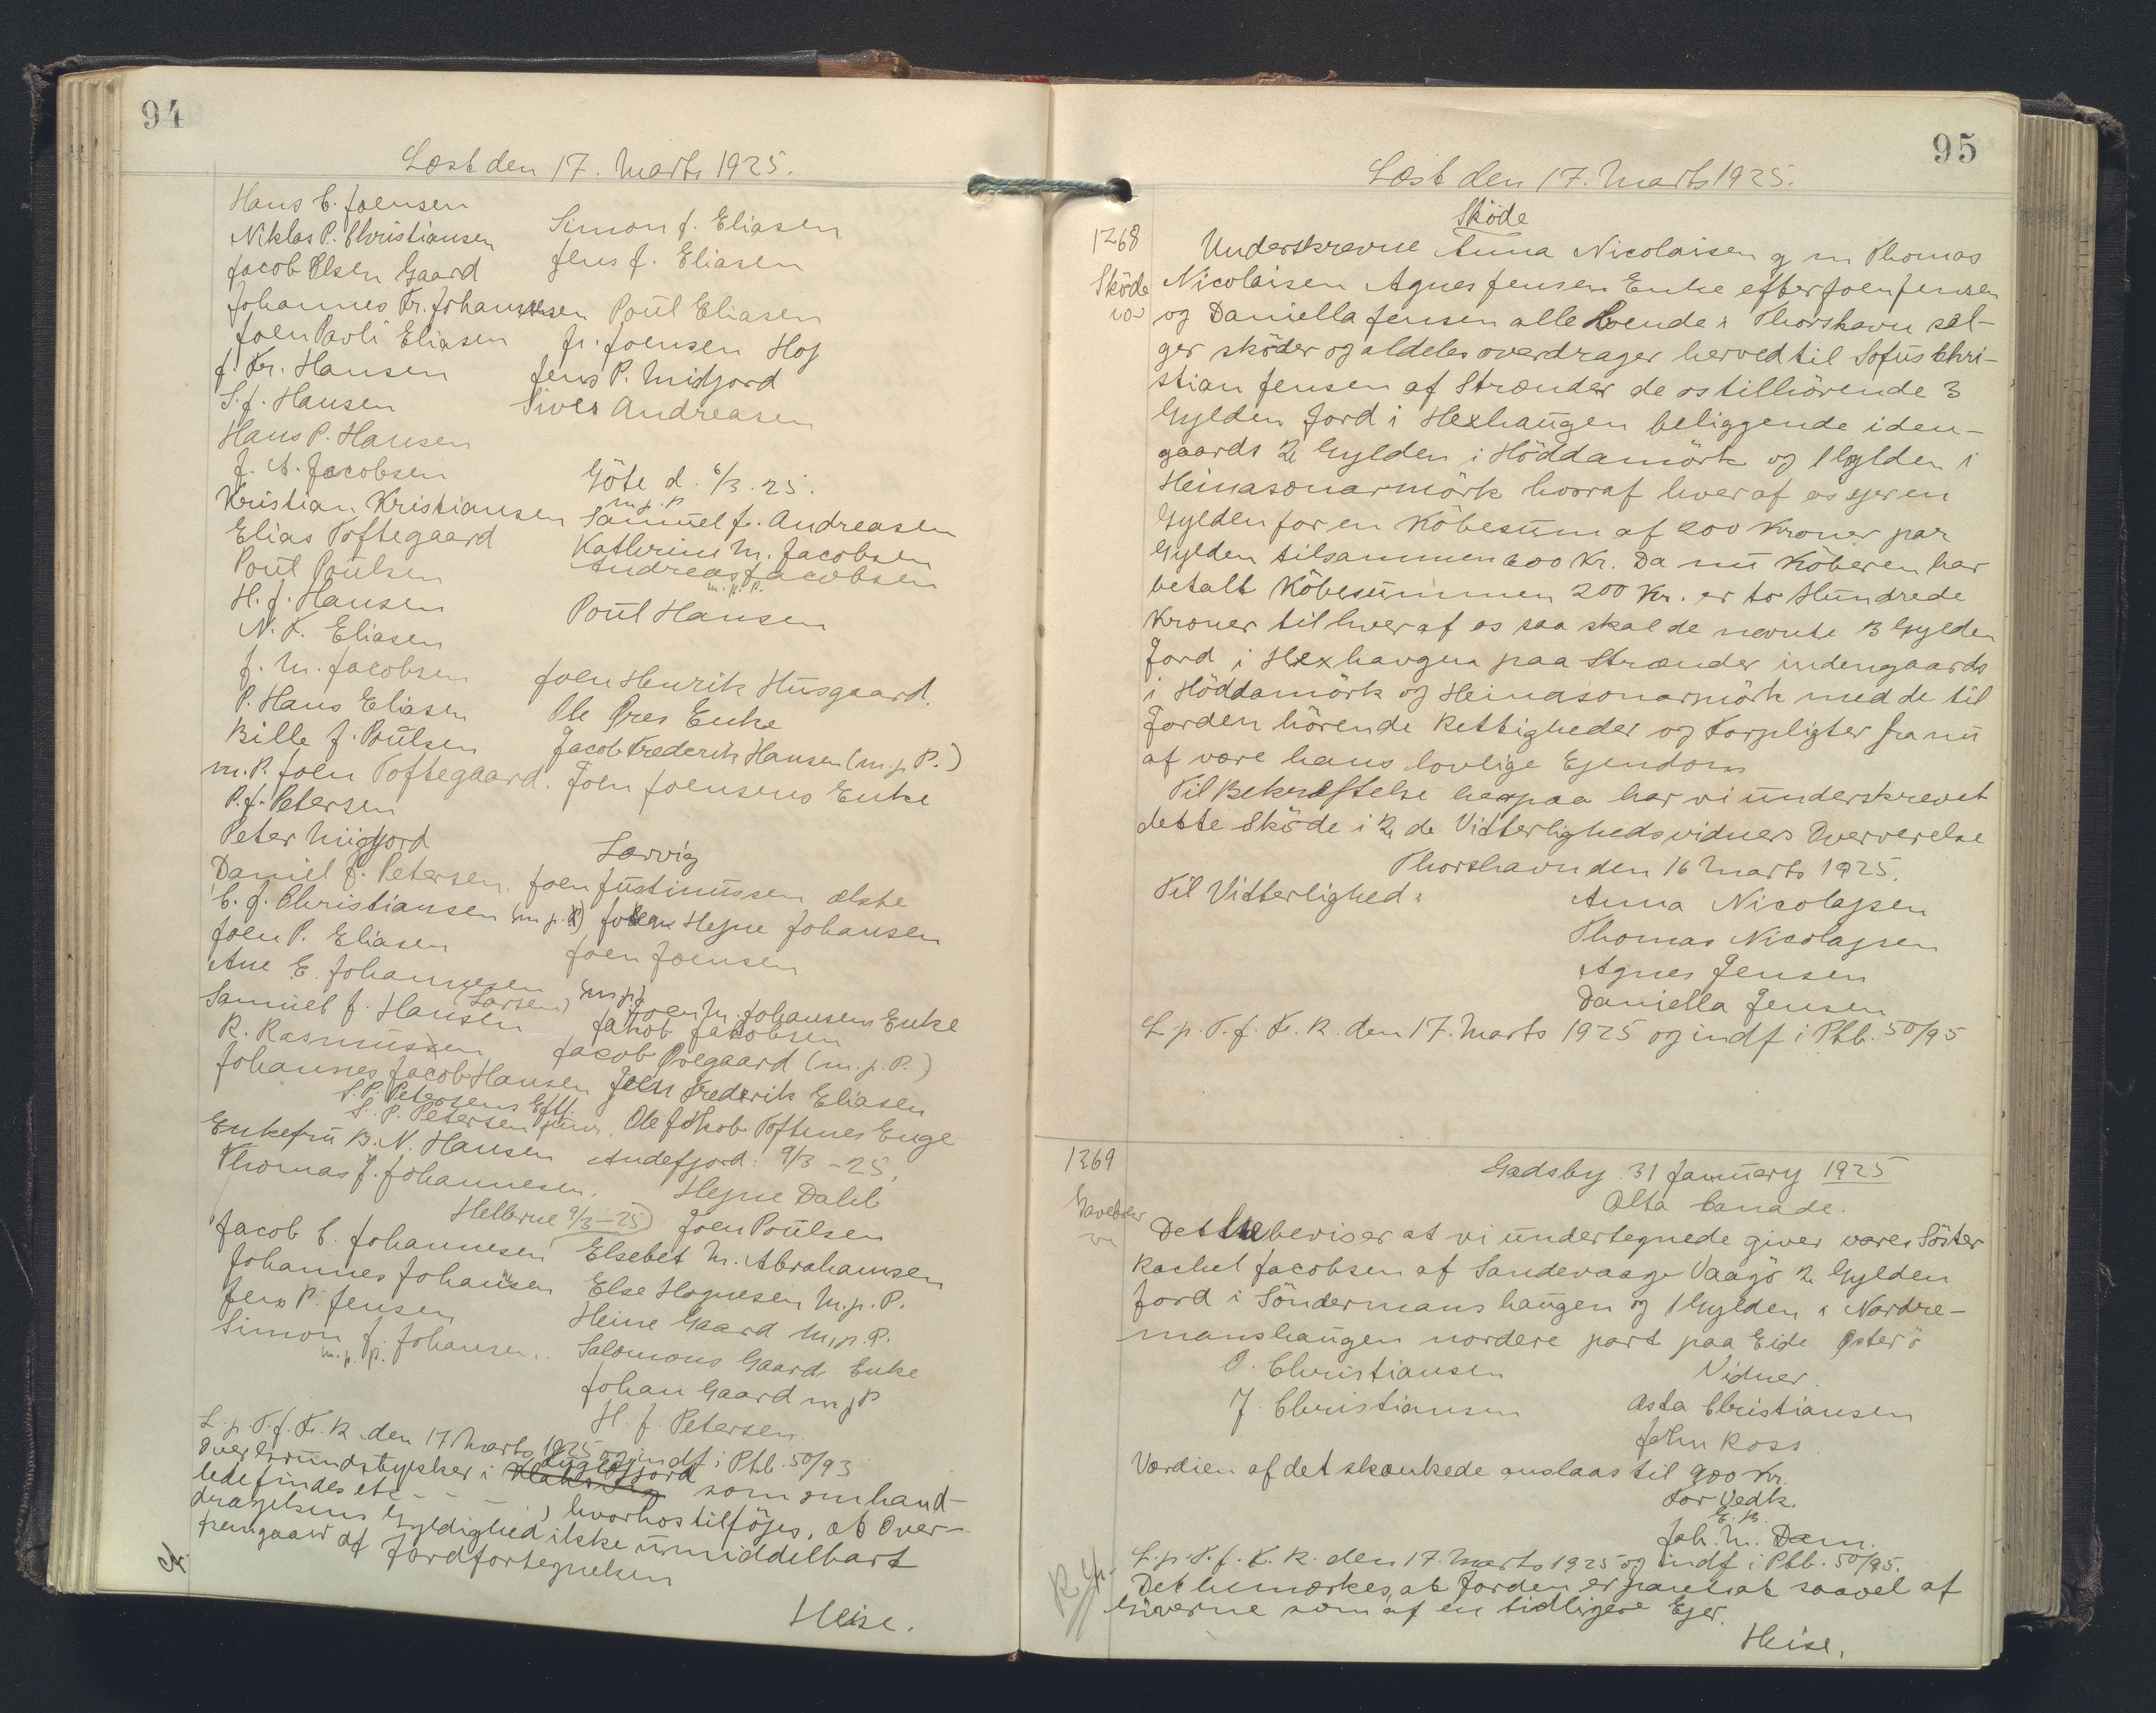 94
Læst den 17. Marts 1925.
Hans C. Joensen
Niklas P. Christiansen
Jacob Olsen Gaard
Johannes Fr. Johannesen
Joen Pavli Eliasen
J. Kr. Hansen
S. J. Hansen
Hans P. Hansen
J. A. Jacobsen
Kristian Kristiansen
Elias Toftegaard
Poul Poulsen
H. J. Hansen
N. K. Eliasen
J. M. Jacobsen
P. Hans Eliasen
Bille J. Poulsen
m. P. Joen Toftegaard.
P. J. Petersen
Peter Midjord
Daniel J. Petersen.
C. J. Christiansen (m. p. P)
Joen P. Eliasen
Ane E. Johannesen
(Larsen)
Samuel J. Hansen
R. Rasmussen
Johannes Jacob Hansen
S. P. Petersens Eftf.
S. P. Petersen jun.
Enkefru B. N. Hansen
Thomas J. Johannesen.
Hellerne 9/3-25)
Jacob C. Johannesen
Johannes Johansen
Jens P. Jensen
Simon J. Johansen..
m. p. P.
Simon J. Eliasen
Jens J. Eliasen
Poul Eliasen
Jr. Joensen Hoj
Jens P. Midjord
Siver Andreasen
Göte d. 6/3. 25.
m. p. P
Samuel Jr. Andreasen
Kathrine M. Jacobsen
Andreas Jacobsen
m. p. P.
Poul Hansen
Joen Henrik Husgaard.
Ole Øres Enke
Jacob Frederik Hansen (m. p. P.)
Joen Joensens Enke
Lorvig
Joen Justinussen ælste
Johan Hejne Johansen
Joen Joensen
(m. p. P
Joen M. Johansens Enke
Jakob Jacobsen
Jacob Øregaard (m. p. P.)
Joen Frederik Eliasen
Ole Jákob Toftenes Enge
Andefjord. 9/3-25,
Hejne Dalil
Joen Poulsen
Elsebet M. Abrahamsen
Else Hognesen M. p. P.
Heine Gaard M. p. P.
Salomons Gaard Enke
Johan Gaard m p P
H. J. Petersen.
L. p. T. f. Fr. R. den 17 Marts 1925 og indf i Ptb. 50/93
Over Grundstykker i Fuglefjord som omhand-
lede findes etc - - - -, hvorhos tilföjes, at Over-
dragelsens Gyldighed ikke umiddelbart
fremgaar af Jordfortegnelsen
Heise.
95
Læst den 17. Marts 1925.
Sköde
1268
Sköde
Underskrevne Anna Nicolaisen g m Thomas
Nicolaisen Agnes Jensen Enke efter Joen Jensen
og Daniella Jensen alle boende i Thorshavn sæl-
ger sköder og aldeles overdrager herved til Sofus Chri-
stian Jensen af Strænder de os tilhörende 3
Gylden Jord i Hexhaugen beliggende iden-
gaards 2 Gylden i Höddamörk og 1 Gylden i
Heinasonarmörk hvoraf hver af os ejer en
Gylden for en Köbesum af 200 Kroner par
Gylden tilsammen 600 Kr. Da nu Köberen har
betalt Köbesummen 200 Kr. er to Hundrede
Kroner til hver af os saa skal de nævnte 3 Gylden
Jord i Hexhavgen paa Strænder indengaards
i Höddamörk og Heinasonarmörk med de til
Jorden hörende Rettigheder og Forpligter fra nu
af være hans lovlige Ejendom
Til Bekræftelse herpaa har vi underskrevet
dette Sköde i 2 de Vitterlighedsvidners Oververelse
Thorshavn den 16 Marts 1925.
Til Vitterlighed:
Anna Nicolajsen
Thomas Nicolajsen
Agnes Jensen
Daniella Jensen
L. p. T. f. Fr. R. den 17. Marts 1925 og indf i Ptb. 50/95
1269
Gavebrev
Gadsby 31 January 1925
Alta Canade.
Det bevises at vi undertegnede giver vores Söster
Rachel Jacobsen af Sandevaage Vaagö 2 Gylden
Jord i Söndermanshaugen og 1 Gylden i Nordre-
manshaugen nordere part paa Eide Österö
O. Christiansen
J. Christiansen
Vidner.
Asta Christiansen
John Ross.
Værdien af det skænkede anslaas til 900 Kr.
For Vedk.
E. B.
Joh. M. Dam.
L. p. T. f. F. R. den 17. Marts 1925 og indf i Ptb. 50/95.
Det bemærkes, at Jorden er pantsat saavel af
Giverne som af en tidligere Ejer.
Heise.